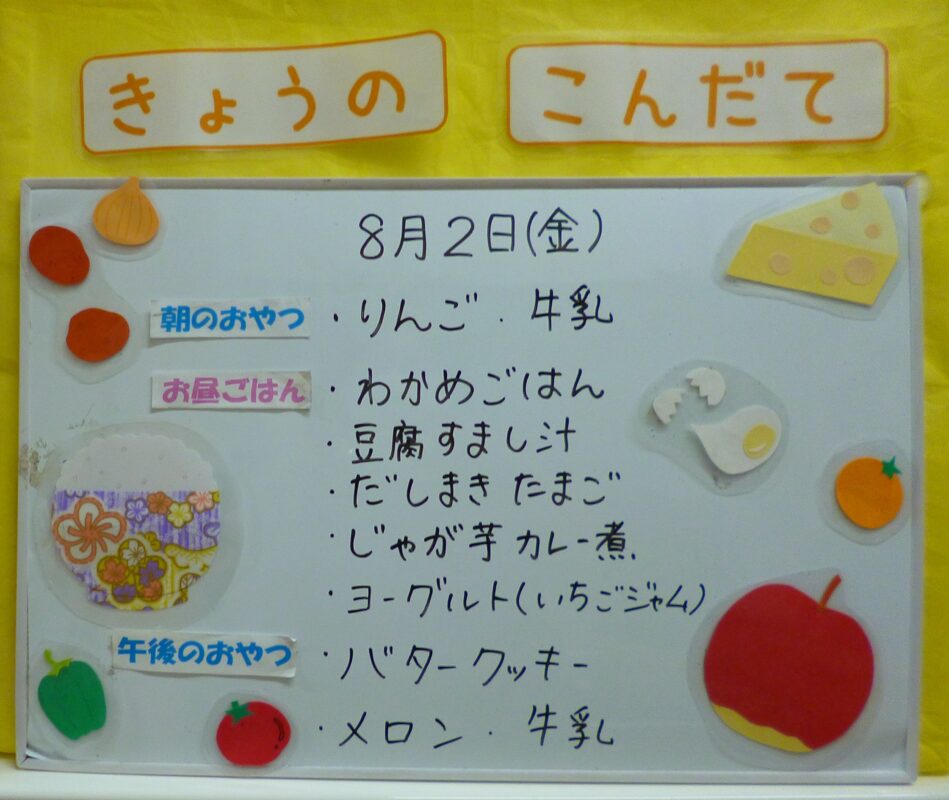 きょうの こんだて
8月2日(金)
朝のおやつ ・りんご ・ 牛乳
お昼ごはん ・わかめごはん
・豆腐すまし汁
・だしまきたまご
・じゃが芋カレー煮
・ヨーグルト(いちごジャム)
午後のおやつ ・バタークッキー
・メロン ・ 牛乳